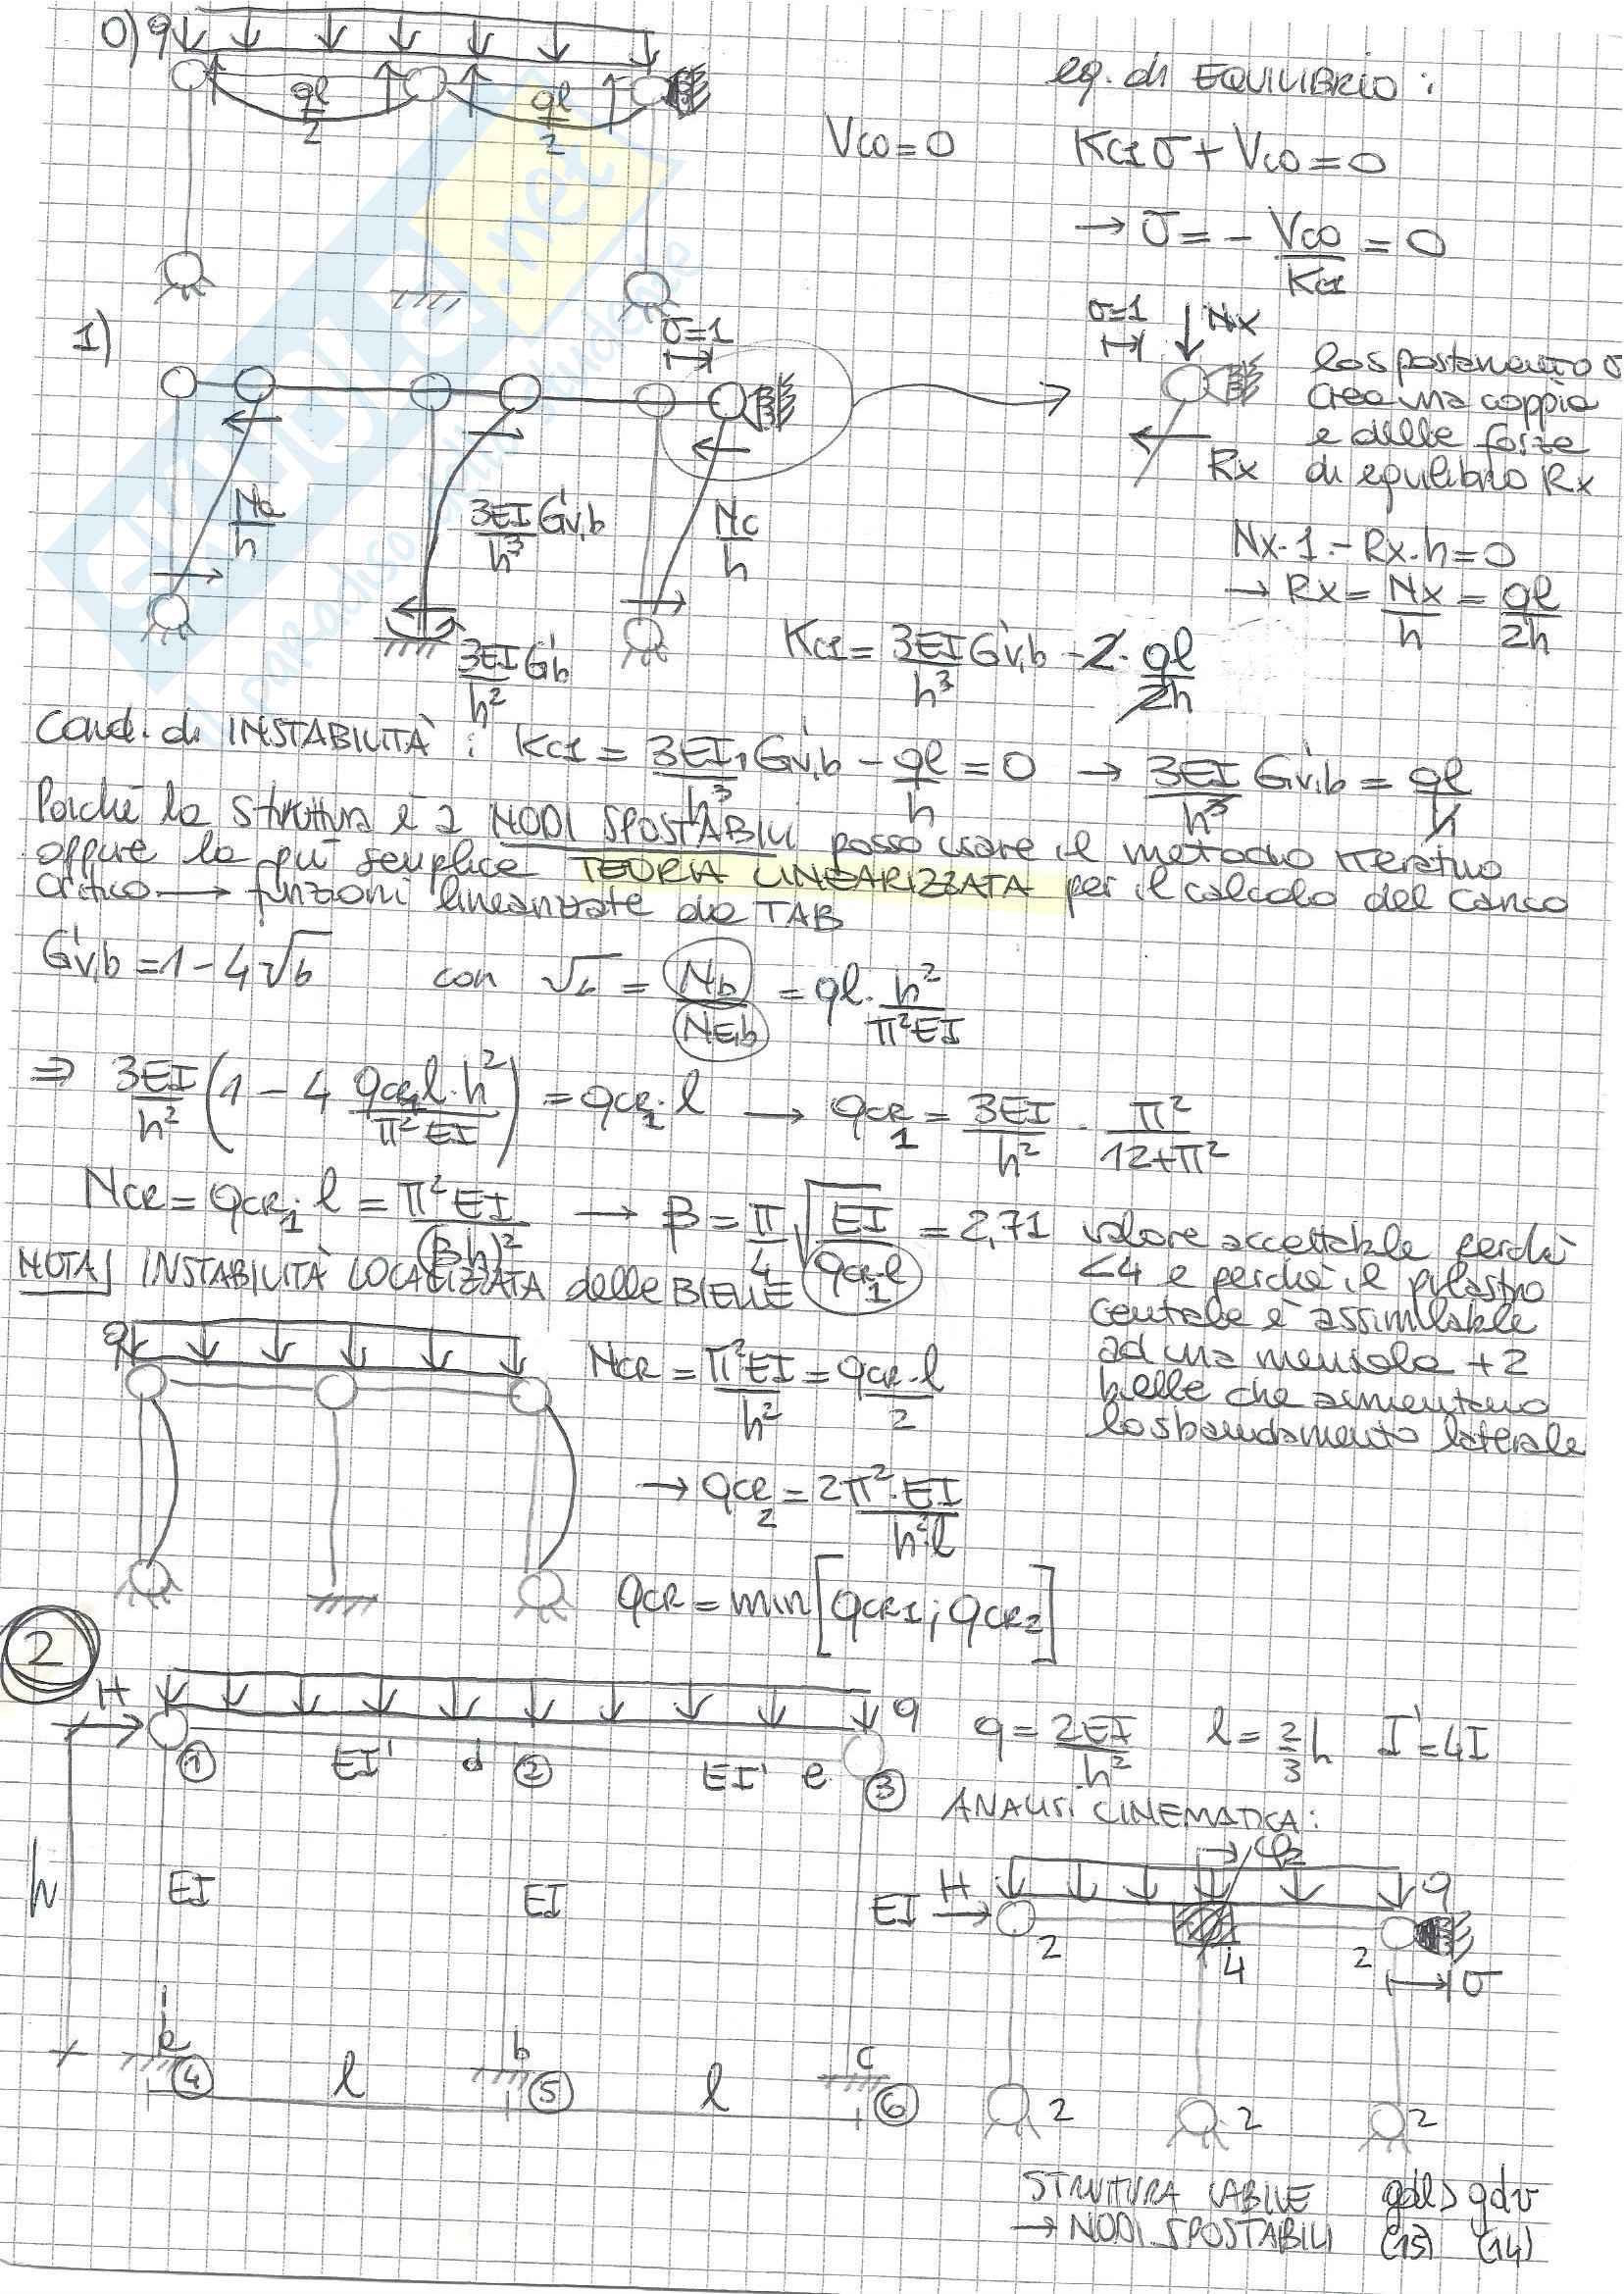 0) q
ql/2 ql/2
eq. di EQUILIBRIO :
Vco = 0 Kc1 σ + Vco = 0
→ σ = - Vco/Kc1 = 0
1)
σ=1
σ=1 Nx
lo spostamento σ
crea una coppia
e delle forze
Rx di equilibrio Rx
Na/h 3EI/h³ G'v,b Nc/h
Nx·1 - Rx·h = 0
→ Rx = Nx/h = ql/2h
3EI/h² G'b
Kc1 = 3EI/h³ G'v,b - 2· ql/2h
Cond. di INSTABILITÀ : Kc1 = 3EI/h³ G'v,b - ql/h = 0 → 3EI/h³ G'v,b = ql/h
Poiché la struttura è a NODI SPOSTABILI posso usare il metodo iterativo
oppure la più semplice TEORIA LINEARIZZATA per il calcolo del carico
critico → funzioni linearizzate da TAB
G'v,b = 1 - 4√b con √b = Nb/NE,b = ql· h²/π²EI
⇒ 3EI/h² (1 - 4 qcr1 l·h²/π²EI) = qcr1·l → qcr1 = 3EI/h² · π²/12+π²
NCR = qCR1·l = π²EI/(βh)² → β = π/4 √EI/qcr1·l = 2,71 valore accettabile perché
<4 e perché il pilastro
centrale è assimilabile
ad una mensola + 2
bielle che aumentano
lo sbandamento laterale
NOTA INSTABILITÀ LOCALIZZATA delle BIELLE
q
NCR = π²EI/h² = qCR·l/2
→ qCR2 = 2π²·EI/h²·l
qCR = min [qCR1; qCR2]
2
H q
q = 2EI/h² l = 2/3 h I' = 4I
1 EI' d 2 EI' e 3
ANALISI CINEMATICA:
φ2
H q
h EI EI EI
2 4 2 σ
b c
4 l 5 l 6
2 2 2
STRUTTURA LABILE gdl > gdv
→ NODI SPOSTABILI (15) (14)